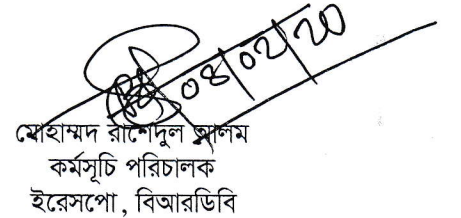 ০৪/০২/২০
মোহাম্মদ রাশেদুল আলম
কর্মসূচি পরিচালক
ইরেসপো, বিআরডিবি